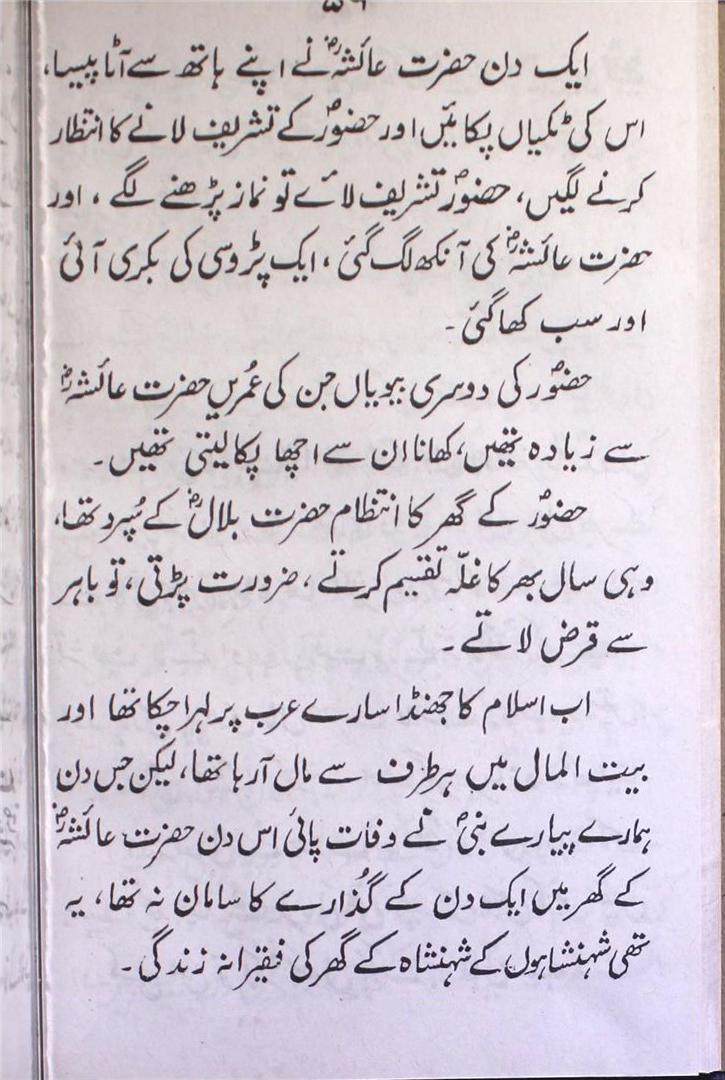 ایک دن حضرت عائشہؓ نے اپنے ہاتھ سے آٹا پیسا،
اس کی ٹکیاں پکائیں اور حضورؐ کے تشریف لانے کا انتظار
کرنے لگیں، حضورؐ تشریف لائے تو نماز پڑھنے لگے، اور
حضرت عائشہؓ کی آنکھ لگ گئی، ایک پڑوسی کی بکری آئی
اور سب کھا گئی۔
حضورؐ کی دوسری بیویاں جن کی عُمریں حضرت عائشہؓ
سے زیادہ تھیں، کھانا ان سے اچھا پکا لیتی تھیں۔
حضورؐ کے گھر کا انتظام حضرت بلالؓ کے سُپرد تھا،
وہی سال بھر کا غلّہ تقسیم کرتے، ضرورت پڑتی، تو باہر
سے قرض لاتے۔
اب اسلام کا جھنڈا سارے عرب پر لہرا چکا تھا اور
بیت المال میں ہر طرف سے مال آرہا تھا، لیکن جس دن
ہمارے پیارے نبیؐ نے وفات پائی اس دن حضرت عائشہؓ
کے گھر میں ایک دن کے گُذارے کا سامان نہ تھا، یہ
تھی شہنشاہوں کے شہنشاہ کے گھر کی فقیرانہ زندگی۔